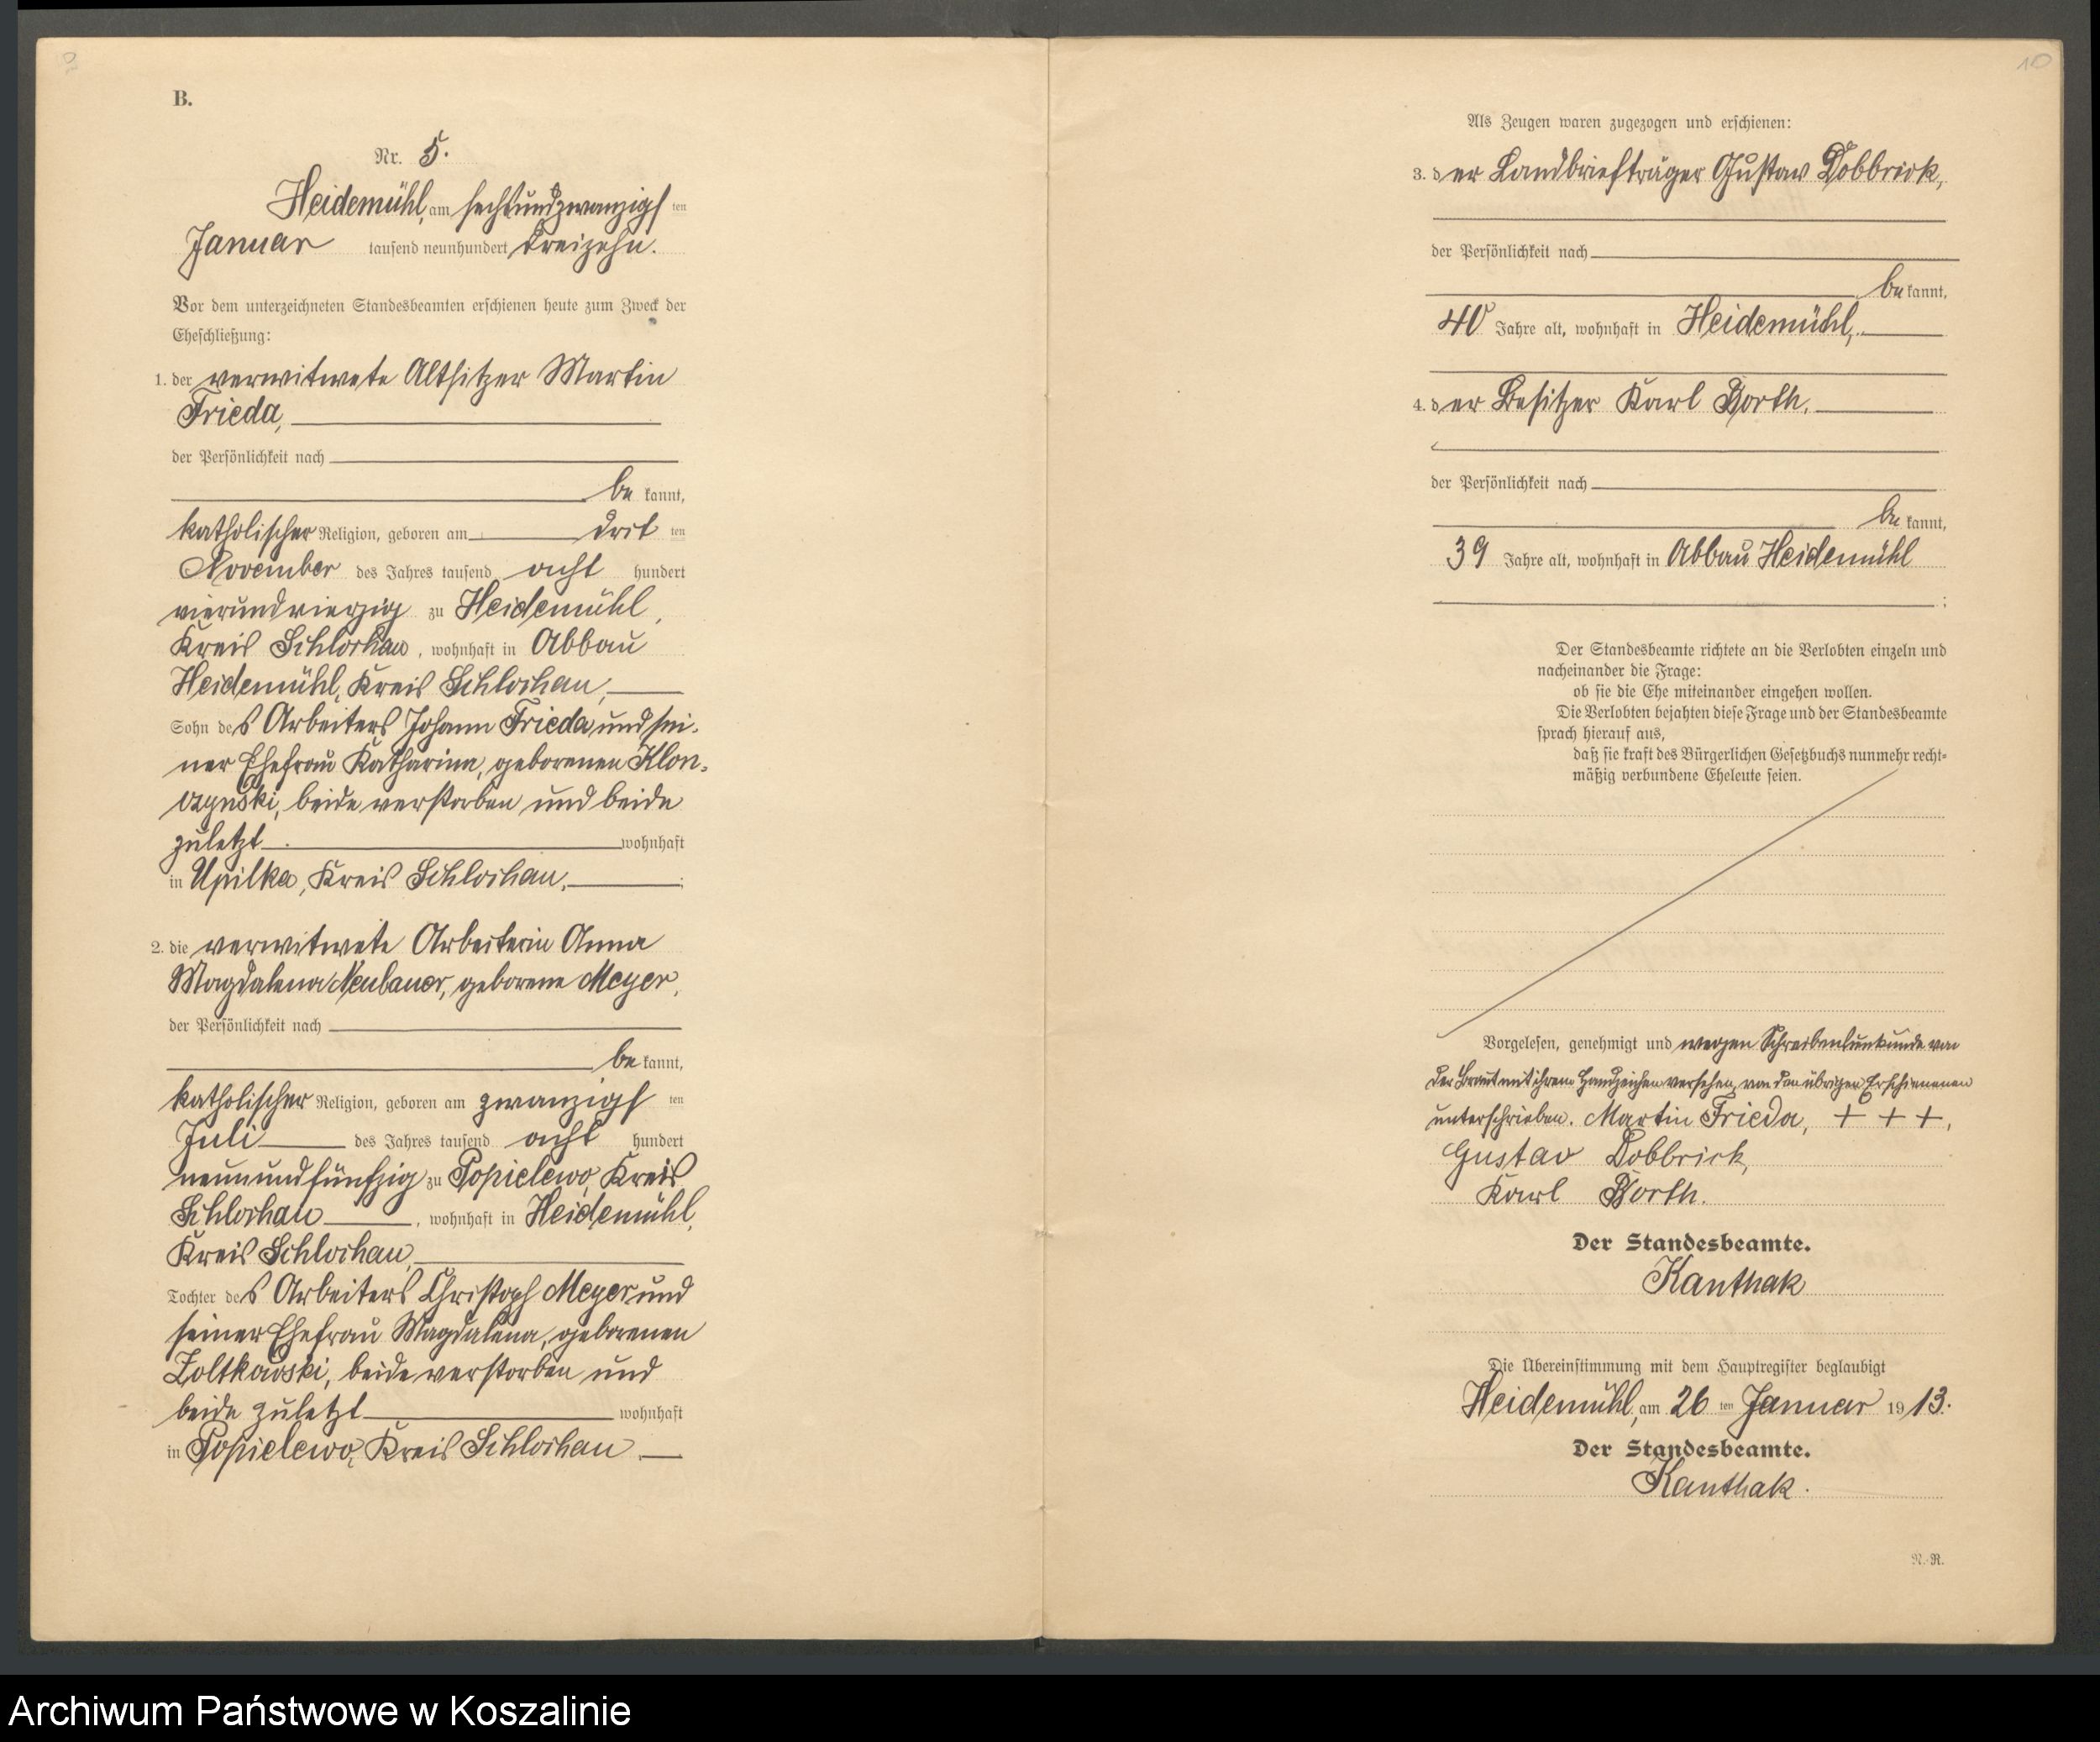 B.
Nr. 5.
Heidemühl, am sechsundzwanzigsten
Januar tausend neunhundert dreizehn.
Vor dem unterzeichneten Standesbeamten erschienen heute zum Zweck der
Eheschließung:
1. der verwitwete Altsitzer Martin
Frieda,
der Persönlichkeit nach
bekannt,
katholischer Religion, geboren am dritten
November des Jahres tausend acht hundert
vierundvierzig zu Heidemühl,
Kreis Schlochau, wohnhaft in Abbau
Heidemühl, Kreis Schlochau,
Sohn des Arbeiters Johann Frieda und sei-
ner Ehefrau Katharina, geborenen Klon-
czynski, beide verstorben und beide
zuletzt wohnhaft
in Upilka, Kreis Schlochau,;
2. die verwitwete Arbeiterin Anna
Magdalena Neubauer, geborene Meyer,
der Persönlichkeit nach
bekannt,
katholischer Religion, geboren am zwanzigsten
Juli des Jahres tausend acht hundert
neunundfünfzig zu Popielewo, Kreis
Schlochau, wohnhaft in Heidemühl,
Kreis Schlochau,
Tochter des Arbeiters Christoph Meyer und
seiner Ehefrau Magdalena, geborenen
Zoltkowski, beide verstorben und
beide zuletzt wohnhaft
in Popielewo, Kreis Schlochau.
10
Als Zeugen waren zugezogen und erschienen:
3. der Landbriefträger Gustav Dobbrick,
der Persönlichkeit nach
bekannt,
40 Jahre alt, wohnhaft in Heidemühl,
4. der Besitzer Karl Borth,
der Persönlichkeit nach
bekannt,
39 Jahre alt, wohnhaft in Abbau Heidemühl
;
Der Standesbeamte richtete an die Verlobten einzeln und
nacheinander die Frage:
ob sie die Ehe miteinander eingehen wollen.
Die Verlobten bejahten diese Frage und der Standesbeamte
sprach hierauf aus,
daß sie kraft des Bürgerlichen Gesetzbuchs nunmehr recht-
mäßig verbundene Eheleute seien.
Vorgelesen, genehmigt und wegen Schreibensunkunde von
der Braut mit ihrem Handzeichen versehen, von den übrigen Erschienenen
unterschrieben. Martin Frieda, + + +,
Gustav Dobbrick,
Karl Borth.
Der Standesbeamte.
Kanthak
Die Übereinstimmung mit dem Hauptregister beglaubigt
Heidemühl, am 26ten Januar 1913.
Der Standesbeamte.
Kanthak.
N.-R.
Archiwum Państwowe w Koszalinie